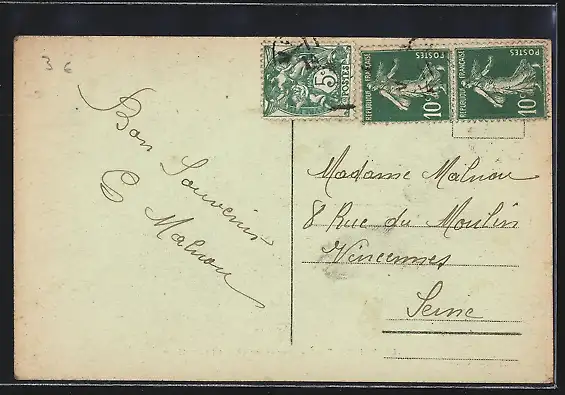 3 6
5c
POSTES
REPUBLIQUE FRANÇAISE
POSTES
10c
REPUBLIQUE FRANÇAISE
POSTES
10c
Bon Souvenir
E Malnou
Madame Malnou
8 Rue du Moulin
Vincennes
Seine